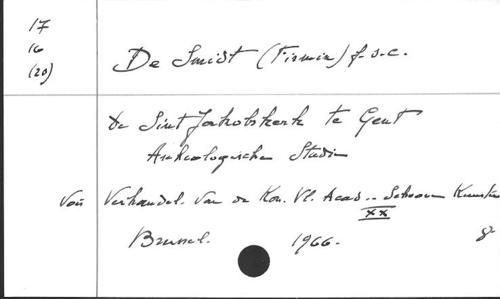 17
16
(20)
De Smidt (Firmin) f.s.c.
De Sint Jakobskerk te Gent
Archeologische Studie
Voir Verhandel. van de Kon. Vl. Acad .. Schoone Kunsten
XX
Brussel. 1966. 8°